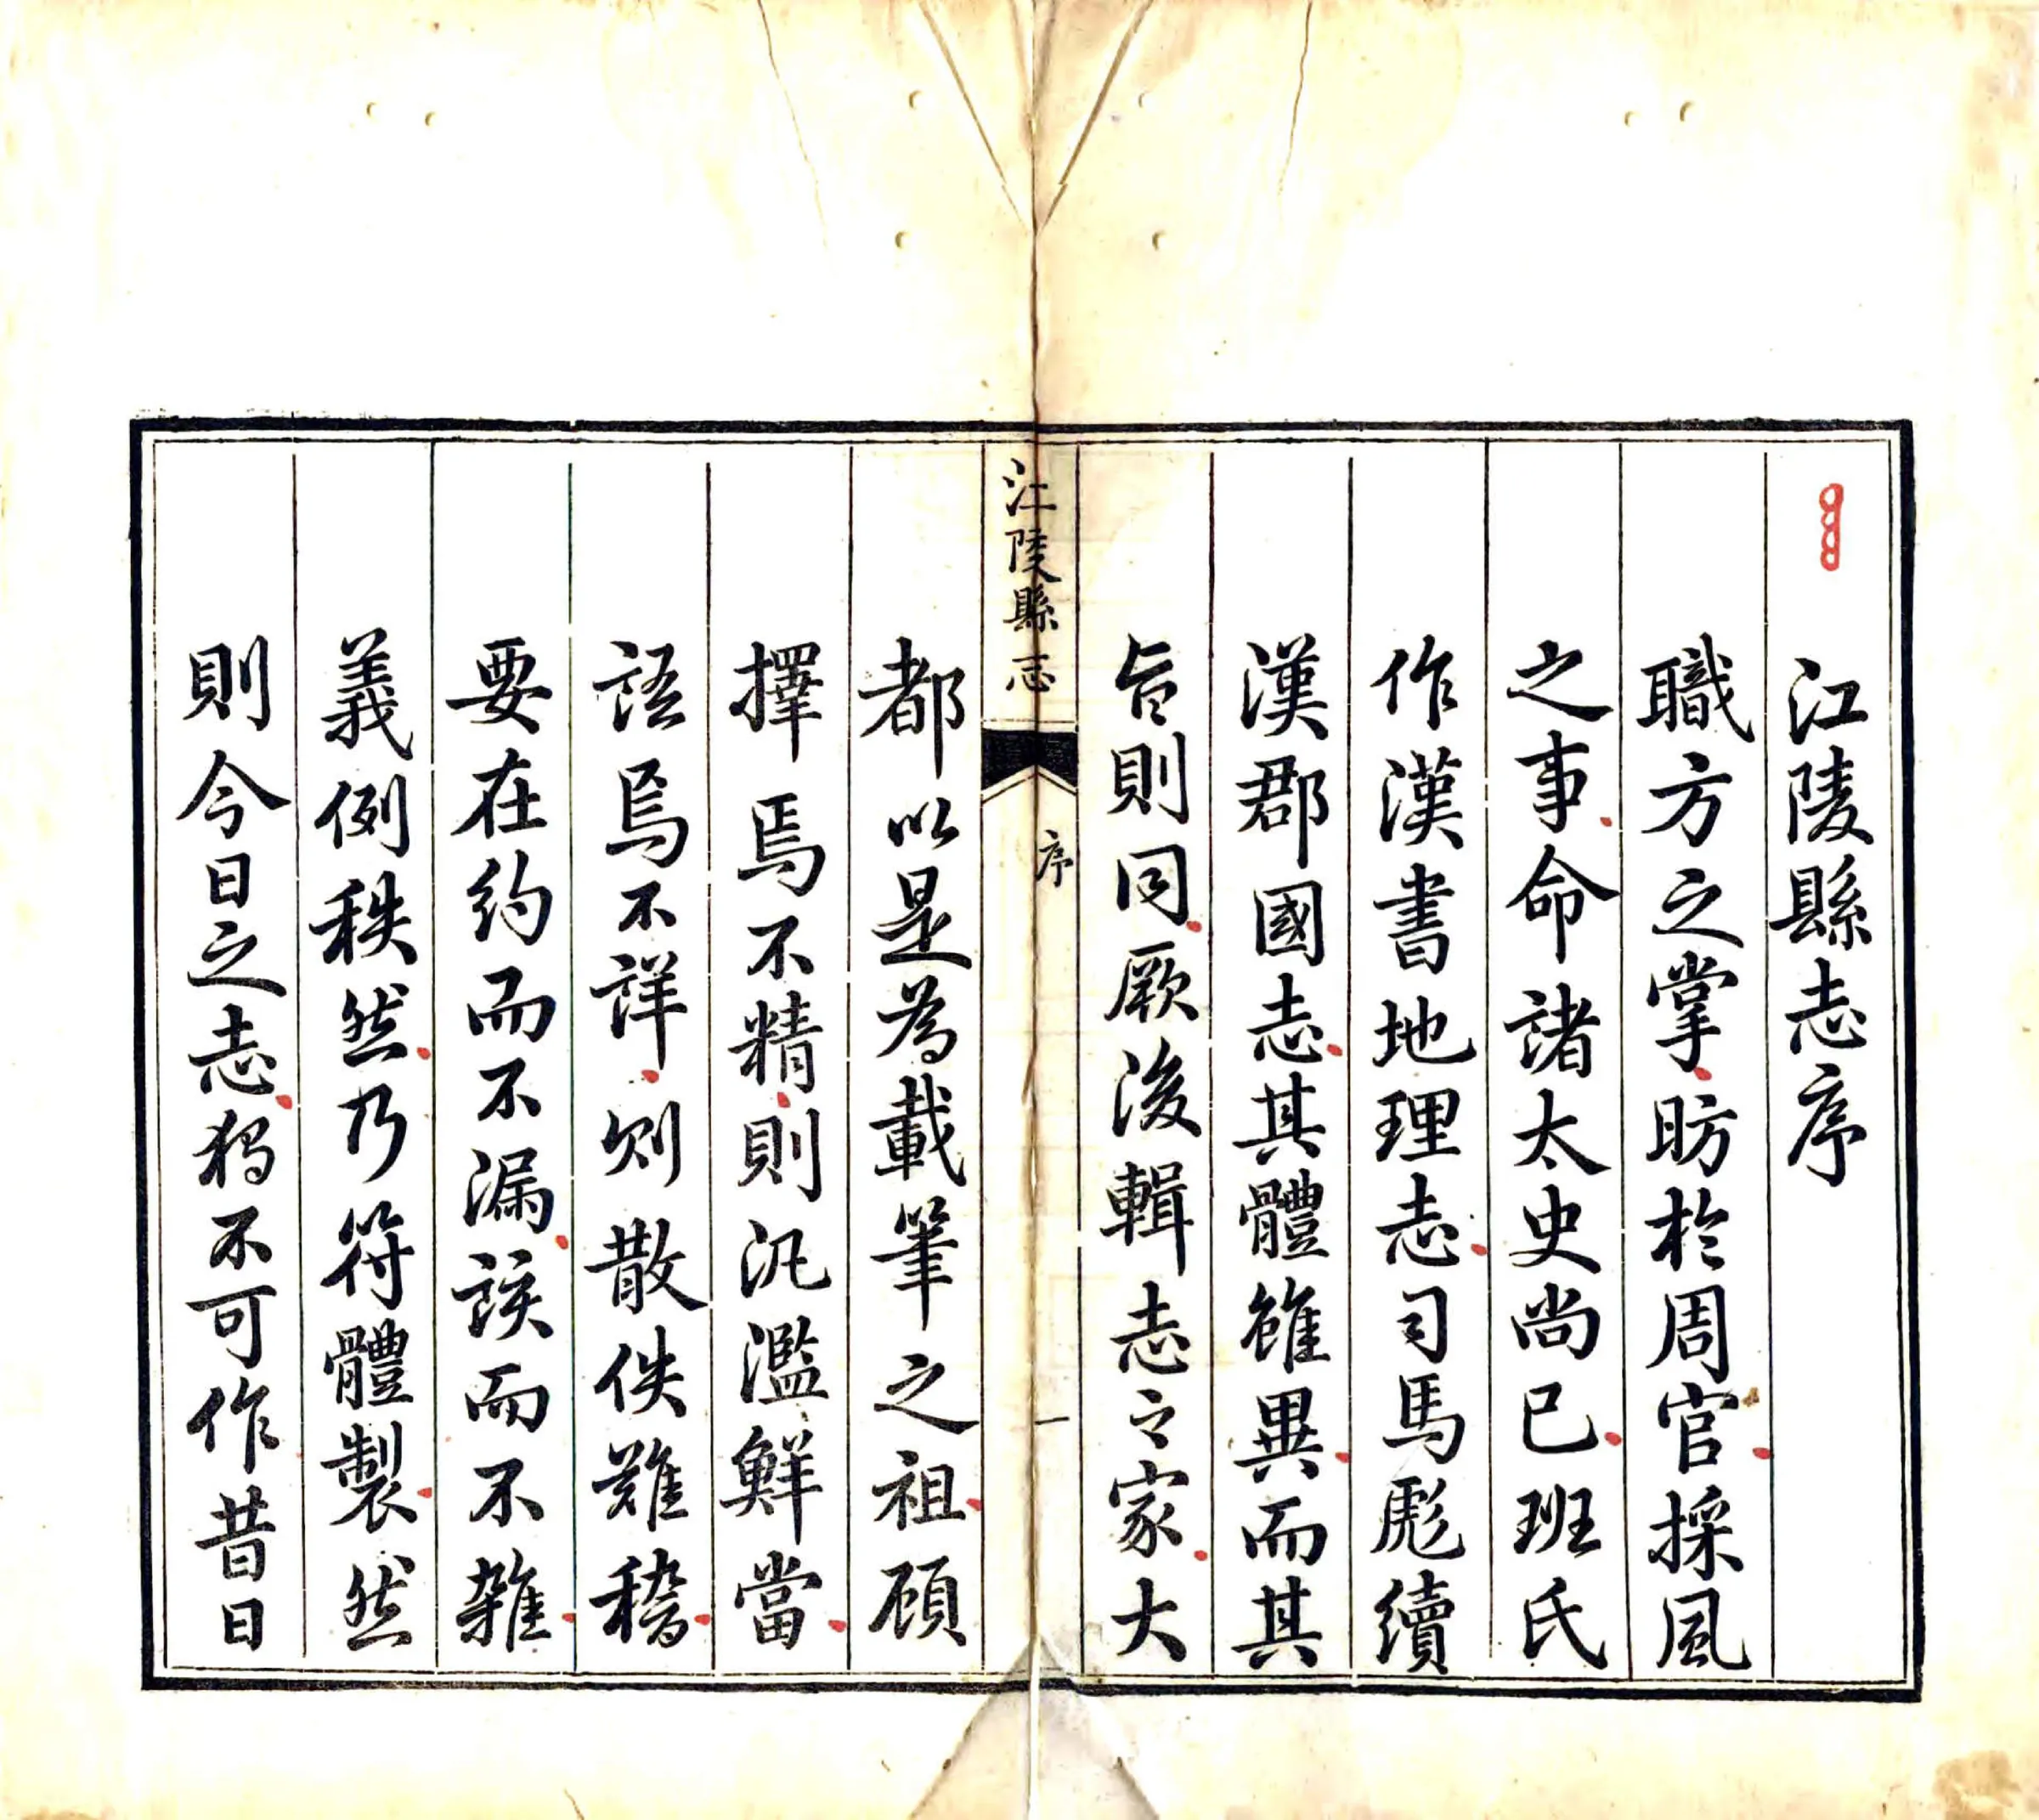 江陵縣志序
職方之掌昉於周官採風
之事命諸太史尚已班氏
作漢書地理志司馬彪續
漢郡國志其體雖異而其
旨則同厥後輯志之家大
江陵縣志
序
一
都以是為載筆之祖顧
擇焉不精則汎濫鮮當
語焉不詳則散佚難稽
要在約而不漏該而不雜
義例秩然乃符體製然
則今日之志猶不可作昔日